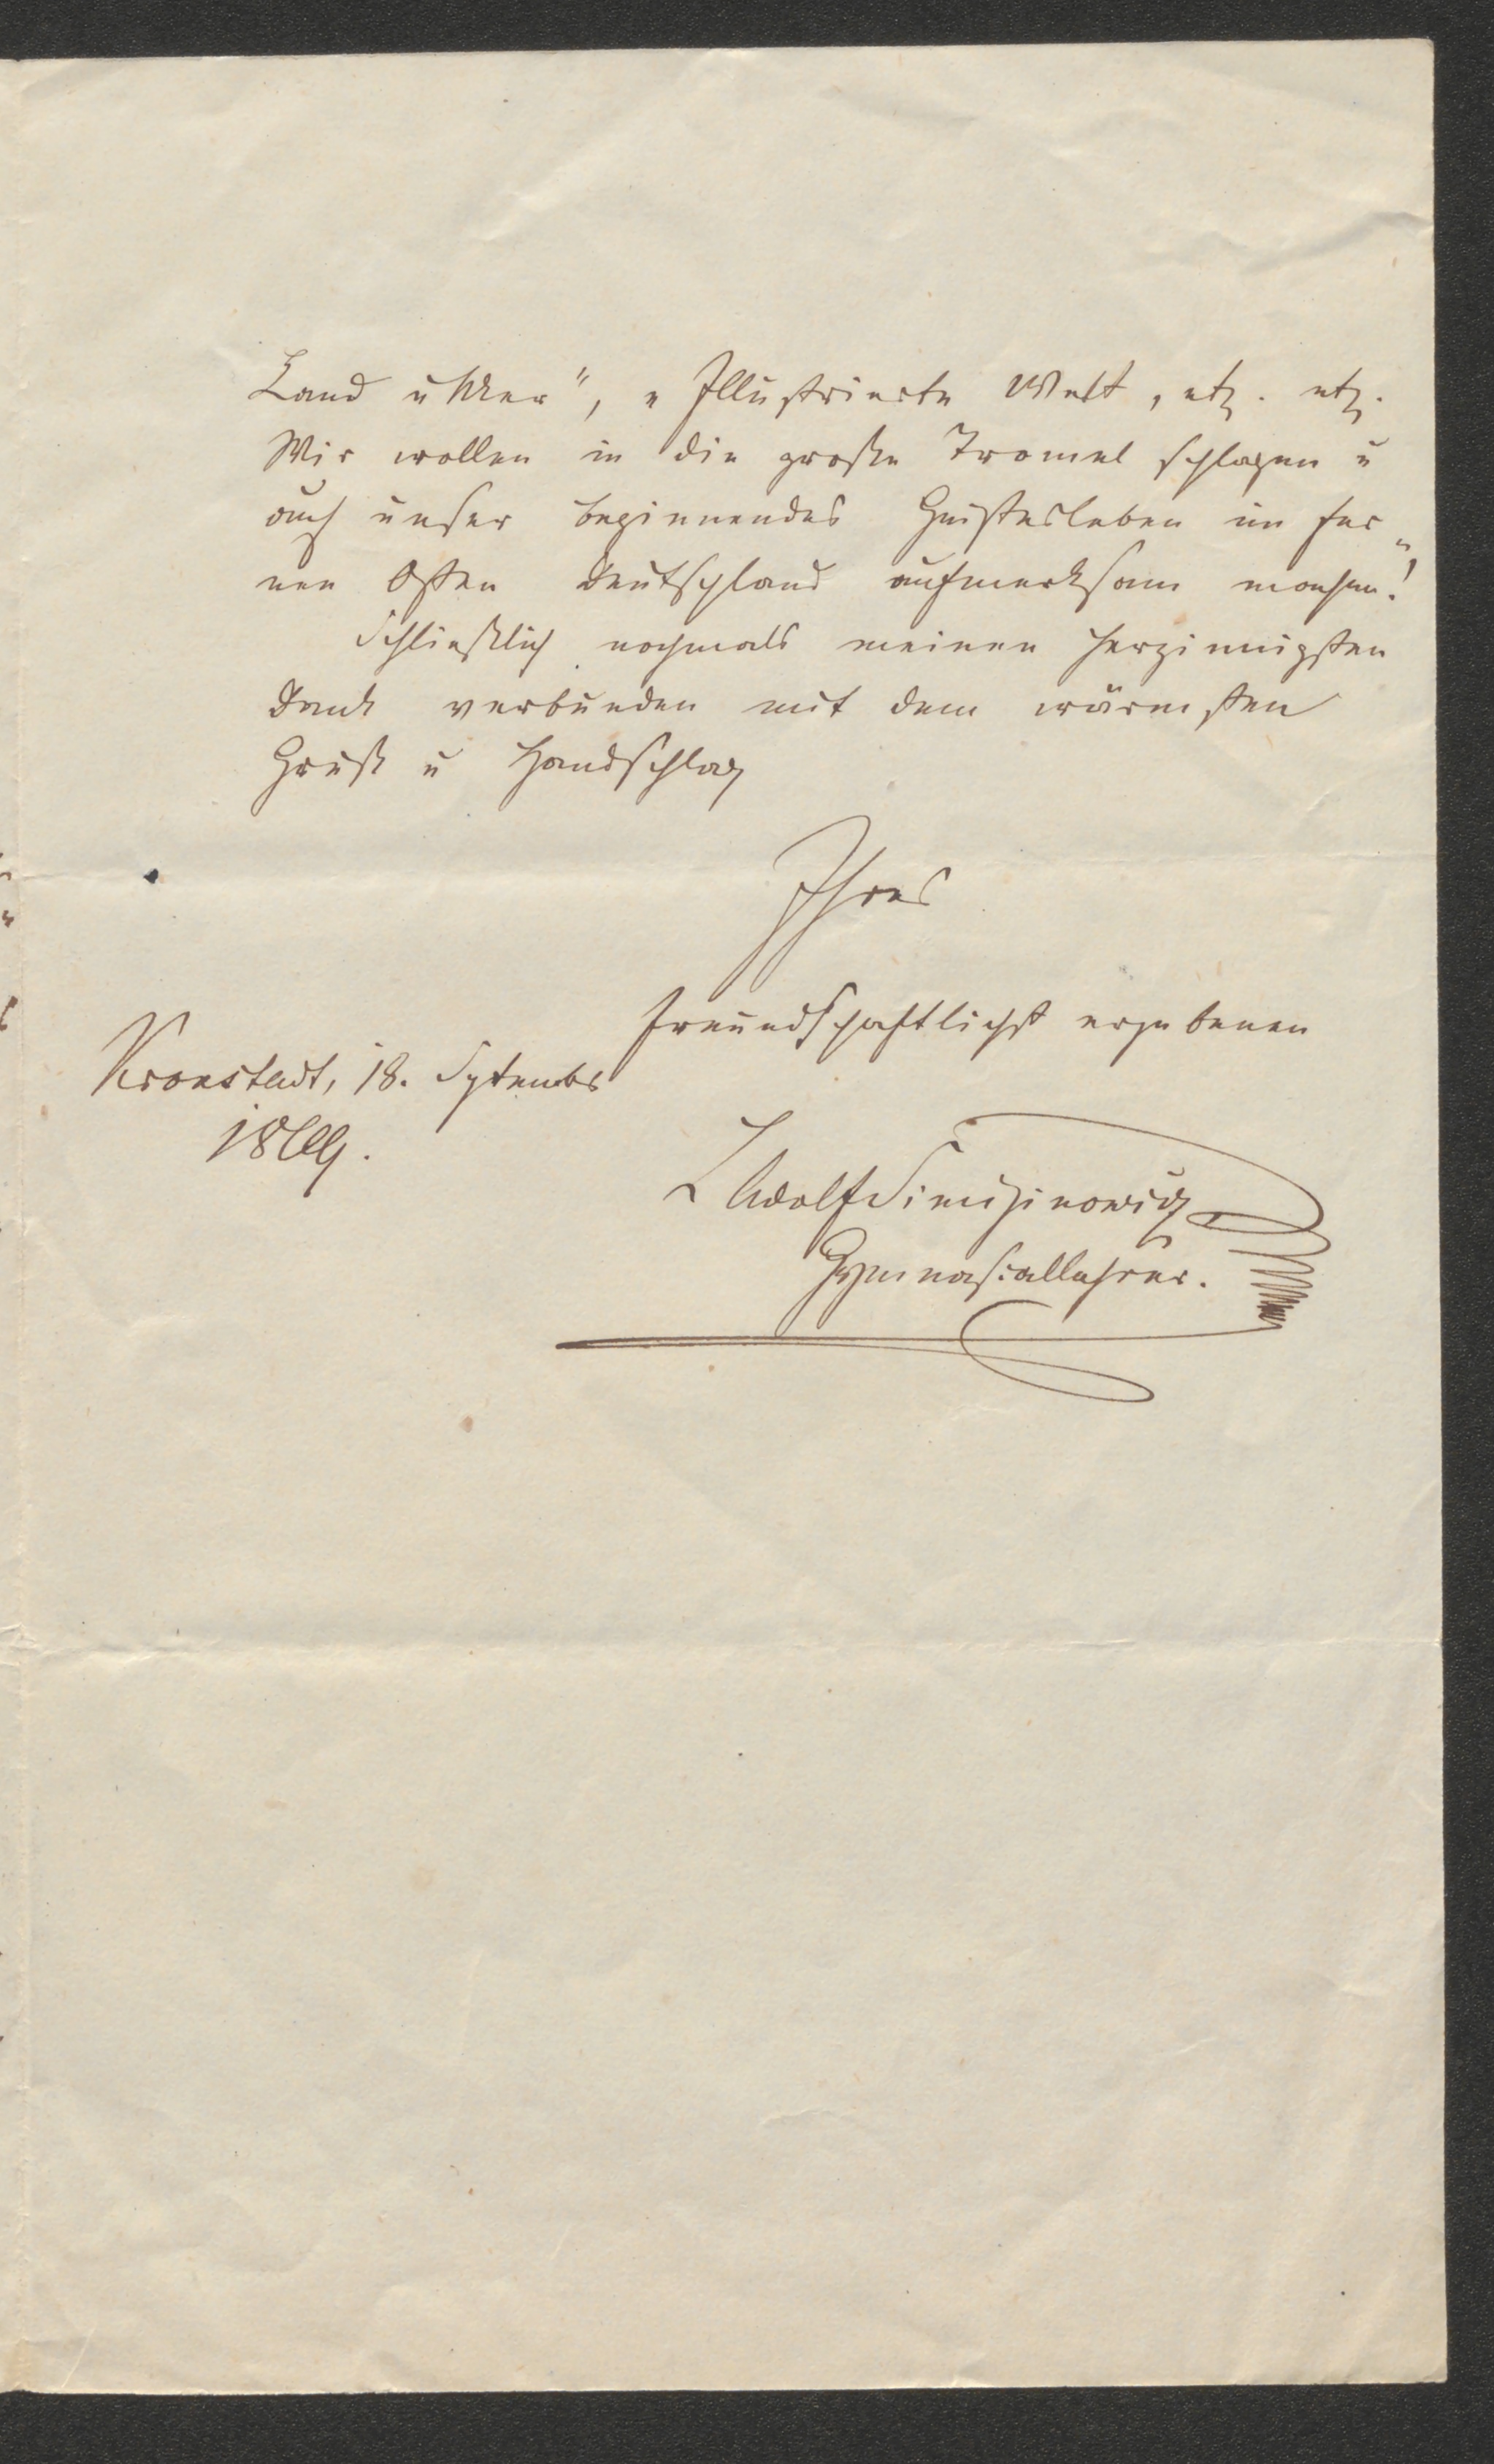 Land u Meer", „Illustrirte Welt, etz. etz.
Wir wollen in die große Tromel schlagen u
auch unser beginnendes Geistesleben im fer„
nen Osten Deutschland aufmerksam machen!
Schließlich nochmals meinen herzinnigsten
Dank verbunden mit dem wärmsten
Gruß u Handschlag
Ihres
freundschaftlichst ergebenen
Kronstadt, 18. September
L Adolf Simiginowicz
Gymnasiallehrer.